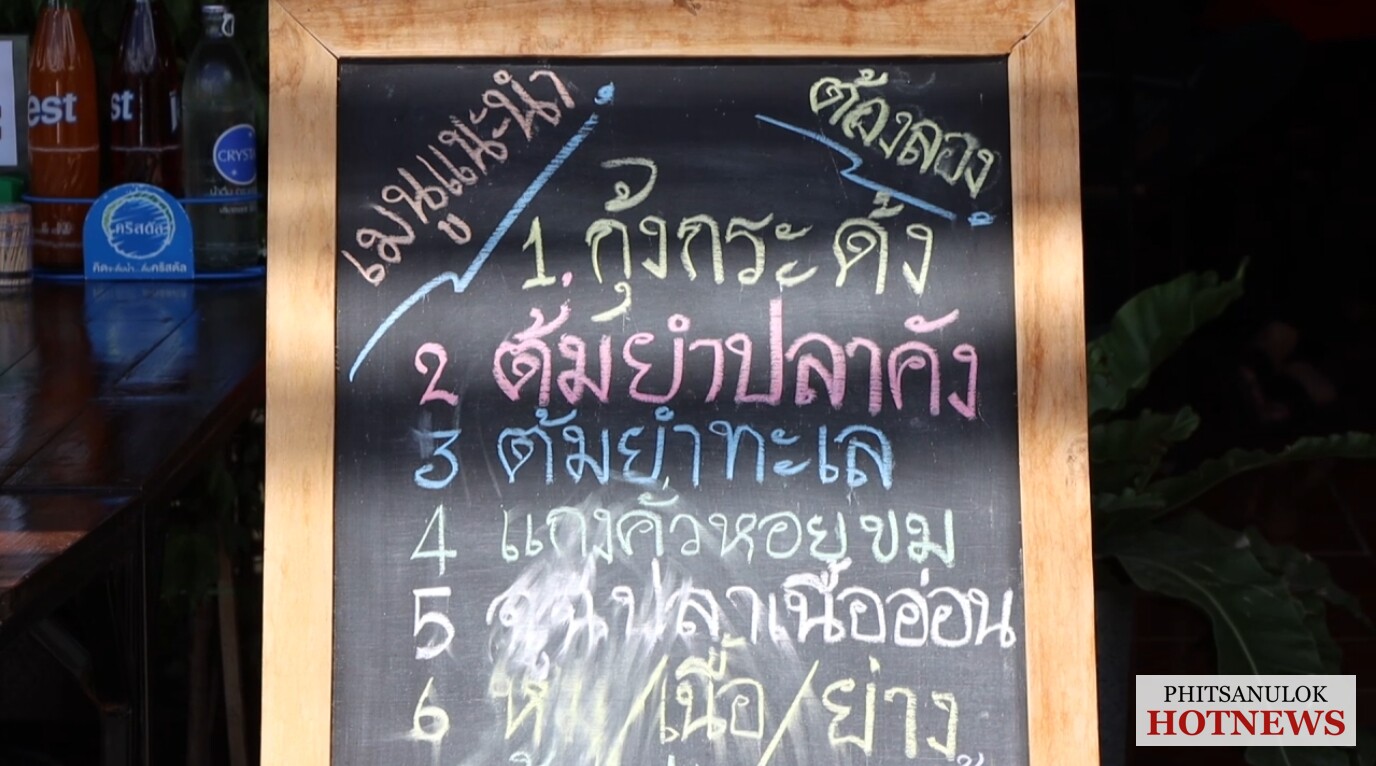 เมนูแนะนำ
ต้องลอง
1. กุ้งกระดั้ง
2 ต้มยำปลาคัง
3 ต้มยำทะเล
4 แกงคั่วหอยขม
5 ปลาเนื้ออ่อน
6 หมู/เนื้อ/ย่าง
est
st
CRYST
คริสตัล
PHITSANULOK
HOTNEWS